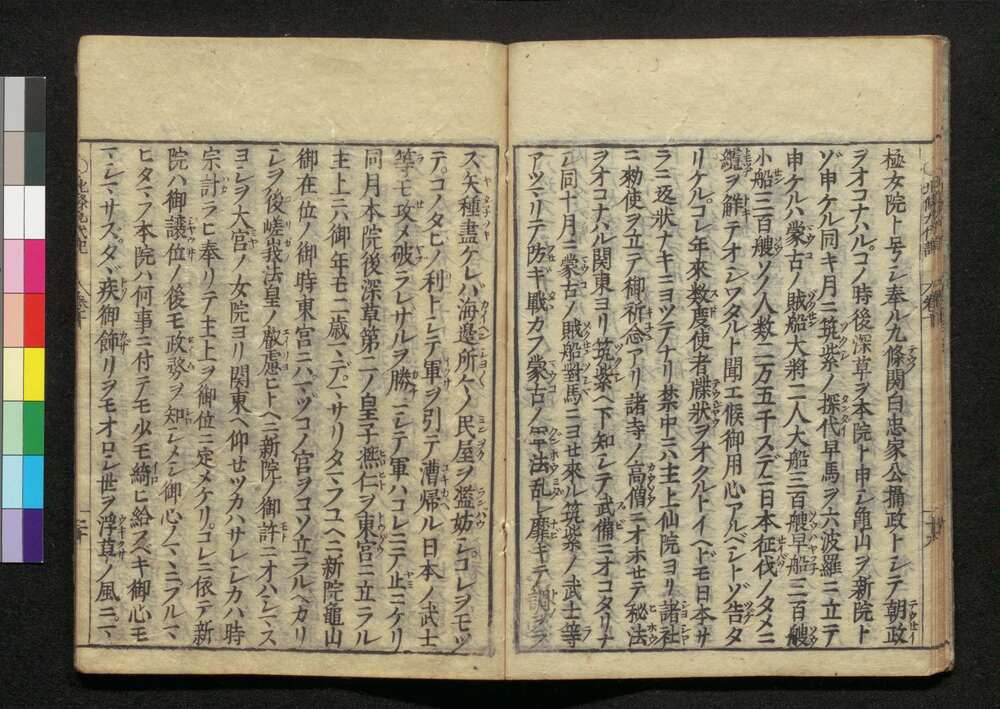 極女院ト号シ奉ル九條関白忠家公攝政トシテ朝政
ヲオコナハルコノ時後深草ヲ本院ト申シ亀山ヲ新院ト
ゾ申ケル同キ月ニ筑紫ノ探代早馬ヲ六波羅ニ立テ
申ケルハ蒙古ノ賊船大將二人大船三百艘早船三百艘
小船三百艘ソノ人数二万五千スデニ日本征伐ノタメニ
纜ヲ解テオシワタルト聞エ候御用心アルベシトゾ告タ
リケルコレ年來数度使者牒狀ヲオクルトイヘドモ日本サ
ラニ返状ナキニヨツテナリ禁中ニハ主上仙院ヨリ諸社
ニ勅使ヲ立テ御祈念アリ諸寺ノ高僧ニオホセテ秘法
ヲオコナハル関東ヨリ筑紫ヘ下知シテ武備ニオコタリナ
シ同十月ニ蒙古ノ賊船對馬ニヨセ來ル筑紫ノ武士等
アツマリテ防ギ戦カフ蒙古ノ軍法乱レ靡キテ調ヲラ
ス矢種盡ケレハ海邊所々ノ民屋ヲ濫妨シコレヲモツ
テコノタビノ利トシテ軍ヲ引テ漕帰ル日本ノ武士
等モ攻メ破ラレサルヲ勝ニシテ軍ハコレニテ止ニケリ
同月本院後深草第二ノ皇子熈仁ヲ東宮ニ立ラル
主上ハ御年モ二歳マデマサリタマフユヘニ新院亀山
御在位ノ御時東宮ニハイヅコノ宮ヲコソ立ラルヘカリ
シヲ後嵯峩法皇ノ叡慮ヒトヘニ新院ノ御許ニオハシマス
ヨシヲ大宮ノ女院ヨリ関東ヘ仰セツカハサレシカハ時
宗計ラヒ奉リテ主上ヲ御位ニ定メケリコレニ依テ新
院ハ御讓位ノ後モ政務ヲ知シメシ御心ノマヽニフルマ
ヒタマフ本院ハ何事ニ付テモ少モ綺ヒ給フベキ御心モ
マシマサスタヾ疾御飾リヲモオロシ世ヲ浮草ノ風ニマ